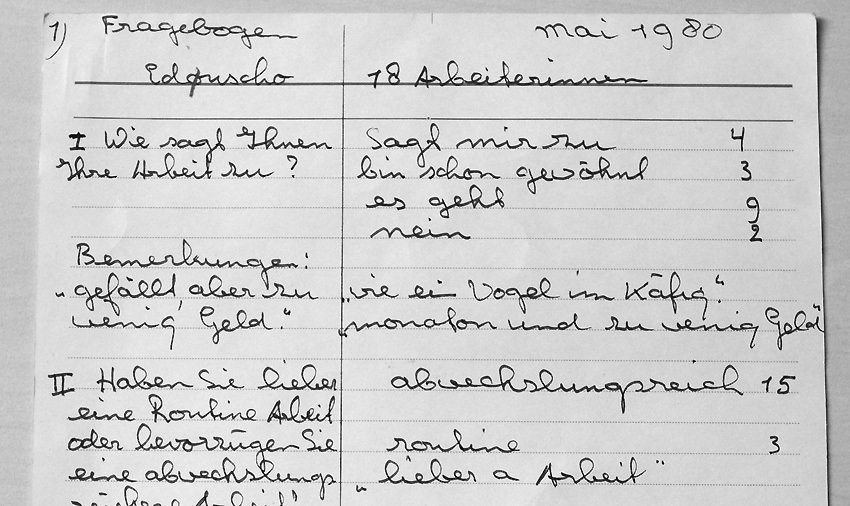 1) Fragebogen mai 1980
Eduscho 18 Arbeiterinnen
I Wie sagt Ihnen Sagt mir zu 4
Ihre Arbeit zu? bin schon gewöhnt 3
es geht 9
nein 2
Bemerkungen:
„gefällt, aber zu „wie ein Vogel im Käfig."
wenig Geld." „monoton und zu wenig Geld"
II Haben Sie lieber abwechslungsreich 15
eine Routine Arbeit
oder bevorzügen Sie routine 3
eine abwechslungs „lieber a Arbeit"
reichere Arbeit?